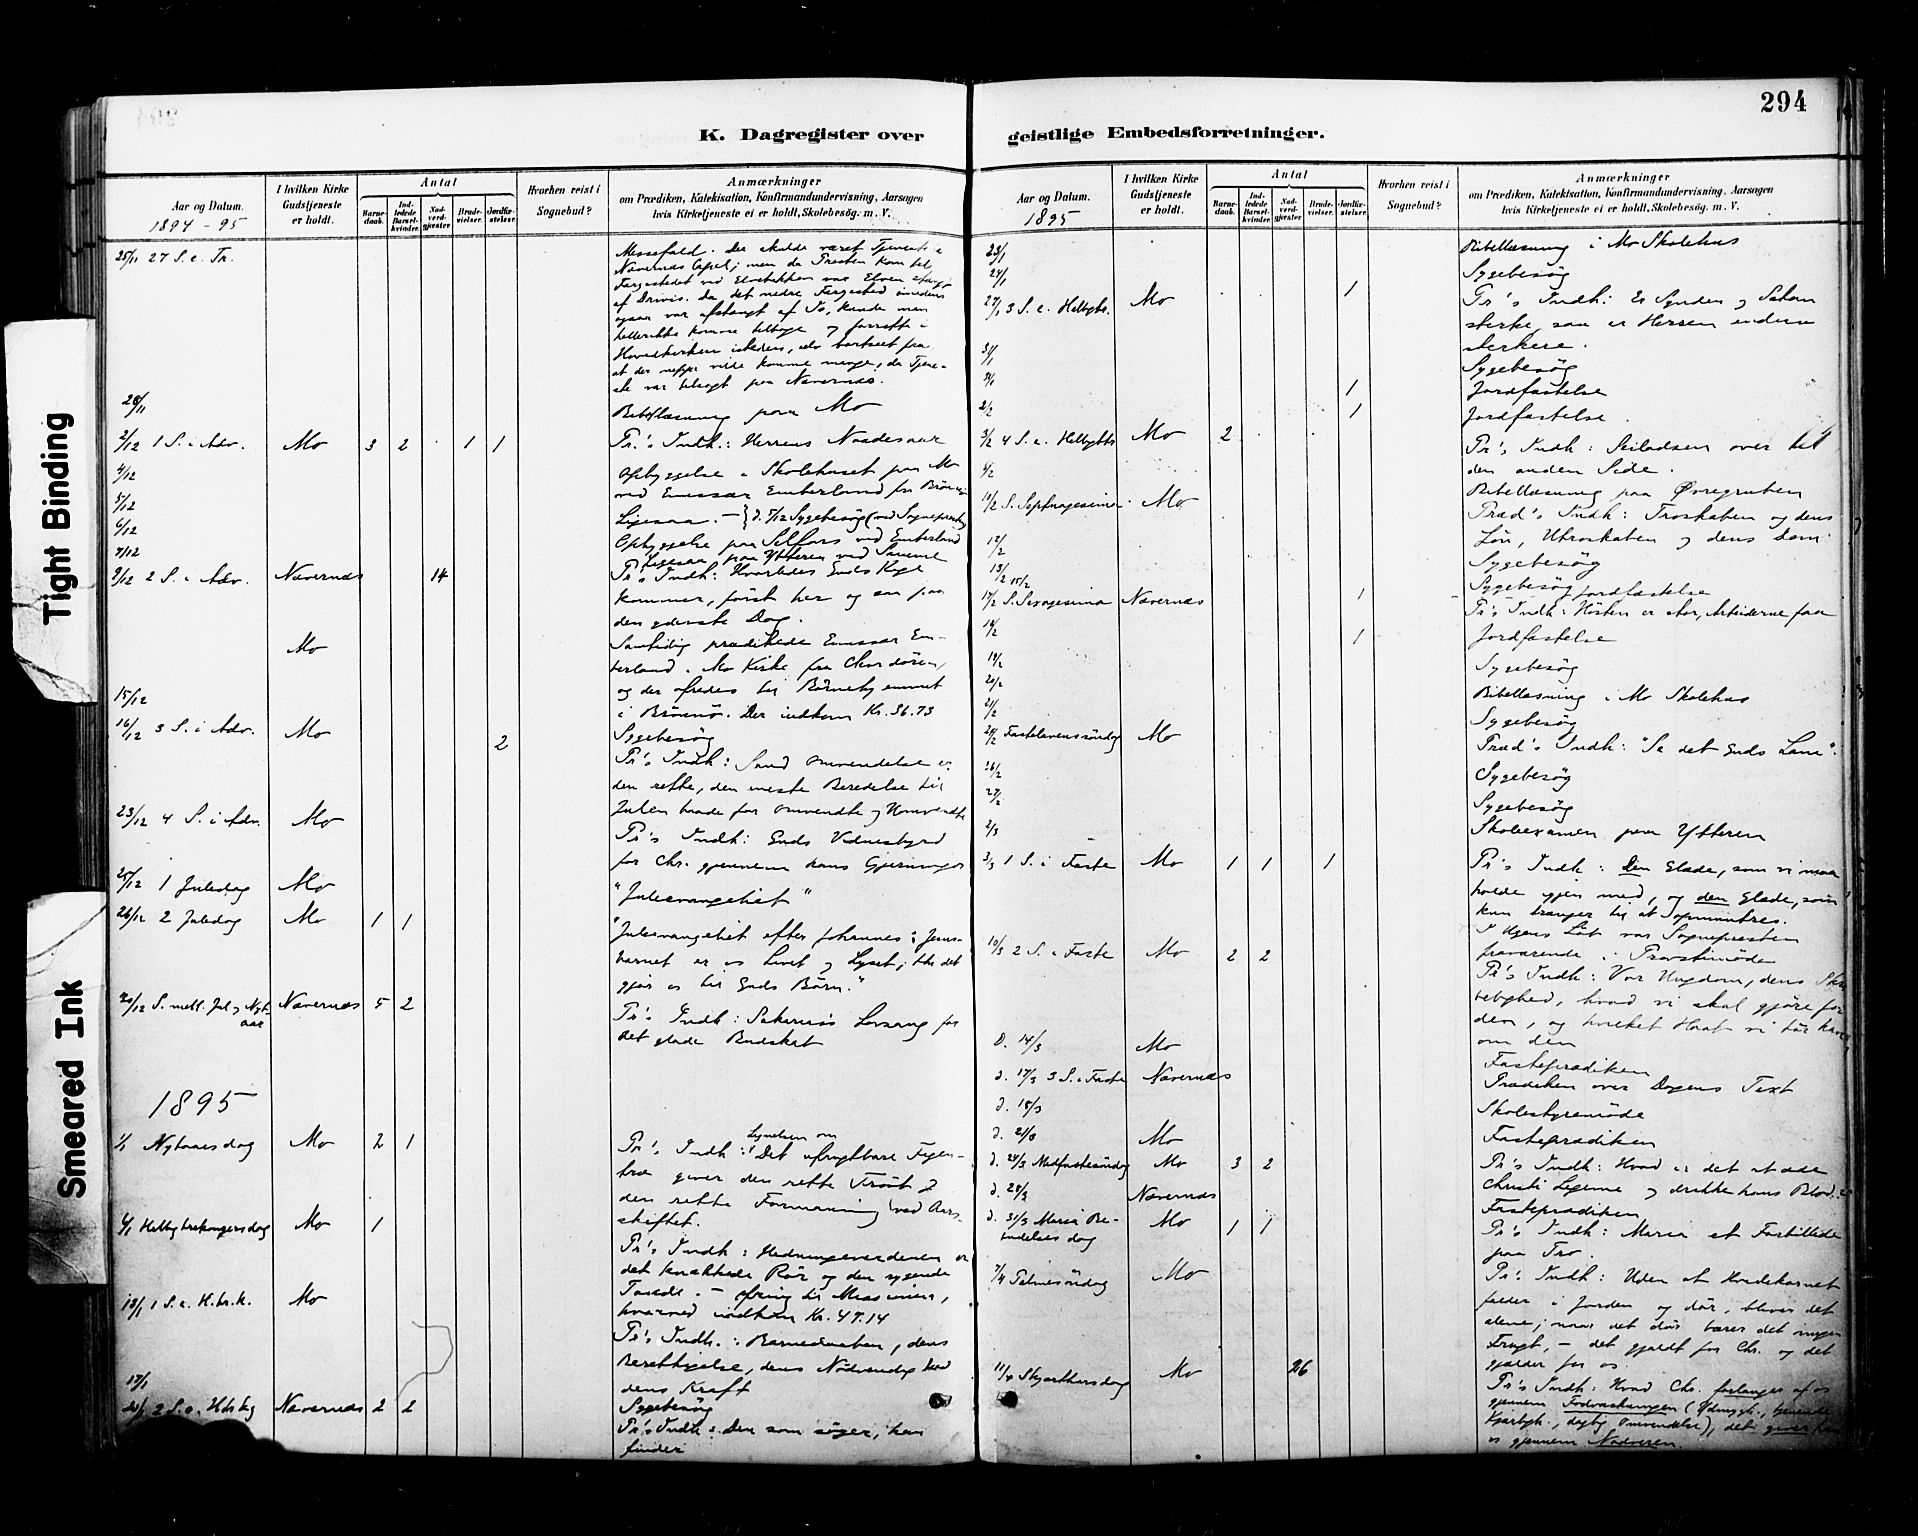 294
K. Dagregister over
geistlige Embedsforretninger.
Tight Binding
Smeared Ink
Aar og Datum.
1894 - 95
I hvilken Kirke Gudstjeneste er holdt.
Antal
Barnedaab.
Indledede Barselkvinder.
Nadverdgjæster
Brudevielser.
Jordfæstelser.
Hvorhen reist i Sognebud?
Anmærkninger
om Prædiken, Katekisation, Konfirmandundervisning, Aarsagen
hvis Kirketjeneste ei er holdt, Skolebesøg. m. V.
25/11 27 S. e. Tr. Messefald. Der skulde været Tjeneste i
Nævernæs Capel; men da Presten kom til
Færgestedet ved
af Drivis. Da det nedre Færgested
ogsaa var afstængt af Is, kunde man
heller ikke komme tilbage og forrette i
Hovedkirken istedens,
at der neppe vilde komme mange, da Tjene-
ste var belyst paa Nævernæs.
28/11 Bibellæsning paa Mo
2/12 1 S. i Adv. Mo 3 2 1 1 Pr.'s Indh.: Herrens Naadesaar
4/12 Opbyggelse i Skolehuset paa Mo
ved Emissær Emberland fra
5/12 Ligesaa. — } d. 5/12 Sygebesøg (ved Sognepresten)
6/12 Opbyggelse paa Selfors ved Emberland
7/12 Ligesaa paa Ytteren ved Samme
9/12 2 S. i Adv. Nævernæs 14 Pr's Indh: Hvorledes Guds Rige
kommer, først her og saa paa
den yderste Dag.
Mo Samtidig prædikede Emissær Em-
berland i Mo Kirke fra Chordøren,
og der ofredes til Børnehjemmet
i Brønnø. Der indkom Kr. 36.73
15/12 Sygebesøg
16/12 3 S. i Adv. Mo 2 Pr's Indh: Sand Omvendelse er
den rette, den eneste Beredelse til
Julen baade for omvendte og Uomvendte
23/12 4 S. i Adv. Mo Pr's Indh: Guds Vidnesbyrd
for Chr. gjennem hans Gjerninger
25/12 1 Juledag Mo "Juleevangeliet"
26/12 2 Juledag Mo 1 1 "Juleevangeliet efter Johannes": Jesus-
barnet er os Livet og Lyset; thi det
gjør os til Guds Børn."
30/12 S. mell. Jul og Nyt-
aar Nævernæs 5 2 Pr's Indh: Sakarias Lovsang for
det glade Budskab
1895
1/1 Nytaarsdag Mo 2 1 Pr's Indh: Lignelsen om Det ufrugtbare Figen-
træ giver den rette Trøst og
den rette Formaning ved Aars-
skiftet.
6/1 Hellig trekongersdag Mo 1 Pr's Indh: Hedningeverdenen er
det knækkede Rør og den rygende
Tande. — Ofring til Missionen,
hvorved indkom Kr. 47.14
13/1 1 S. e. H. tr. k. Mo Pr's Indh.: Barnedaaben, dens
Berettigelse, dens Nødvendighed
dens Kraft
17/1 Sygebesøg
20/1 2 S. e. Nævernæs 2 2 Pr's Indh: Den som søger, han
finder
Aar og Datum.
1895
I hvilken Kirke Gudstjeneste er holdt.
Antal
Barnedaab.
Indledede Barselkvinder.
Nadverdgjæster
Brudevielser.
Jordfæstelser.
Hvorhen reist i Sognebud?
Anmærkninger
om Prædiken, Katekisation, Konfirmandundervisning, Aarsagen
hvis Kirketjeneste ei er holdt, Skolebesøg. m. V.
23/1 Bibellæsning i Mo Skolehus
24/1 Sygebesøg
27/1 3 S. e. Helligtr. Mo 1 Pr's Indh: Er Synden og Satan
sterke, saa er Herren endnu
sterkere.
31/1 Sygebesøg
1 Jordfæstelse
2/2 1 Jordfæstelse.
3/2 4 S. e. Helligtr. Mo 2 Pr's Indh: Seiladsen over til
den anden Side.
6/2 Bibellæsning paa Øvregruben
10/2 S. Septuagesima Mo Præd's Indh: Troskaben og dens
Løn, Utroskaben og dens Dom.
12/2 Sygebesøg
13/2 15/2 Sygebesøg Jordfæstelse
17/2 S. Sexagesima Nævernæs 1 Pr's Indh: Høsten er stor, Arbeiderne faa
18/2 1 Jordfæstelse
19/2 Sygebesøg
20/2 Bibellæsning i Mo Skolehus
21/2 Sygebesøg
24/2 Fastelavenssøndag Mo Præd's Indh: "Se det Guds Lam".
26/2 Sygebesøg
27/2 Sygebesøg
2/3 Skoleexamen paa Ytteren
3/3 1 S. i Faste Mo 1 1 1 Pr's Indh: Den Glæde, som vi maa
holde igjen med, og den Glæde, som
kun trænger til at opmuntres.
I Ugens Løb var Sognepresten
fraværende i Provstimøde
10/3 2 S. i Faste Mo 2 2 Pr's Indh: Vor Ungdom, dens
hvad vi skal gjøre for
den, og hvilket Haab vi tør have
om den
D. 14/3 Mo Fasteprædiken
d. 17/3 3 S. i Faste Nævernæs Prædiken over Dagens Text
d. 18/3 Skolestyremøde
d. 21/3 Mo Fasteprædiken
d. 24/3 Midfastesøndag Mo 3 2 Pr's Indh: Hvad er det at æde
Christi Legeme og drikke hans Blod?
d. 28/3 Nævernæs Fasteprædiken
d. 31/3 Mariæ Be-
budelses dag Mo 1 1 Pr's Indh: Maria et Forbillede
paa Tro.
7/4 Palmesøndag Mo Pr's Indh: Uden at Hvedekornet
falder i Jorden og dør, bliver det
alene; naar det dør bærer det megen
Frugt, — det gjaldt for Chr. og det
gjælder for os.
11/4 Skjærthorsdag Mo 26 Pr's Indh: Hvad Chr. forlanger af os
gjennem Fodvaskningen (Ydmygh.,
Kjærligh., daglig Omvendelse), det giver han
os gjennem Nadveren.